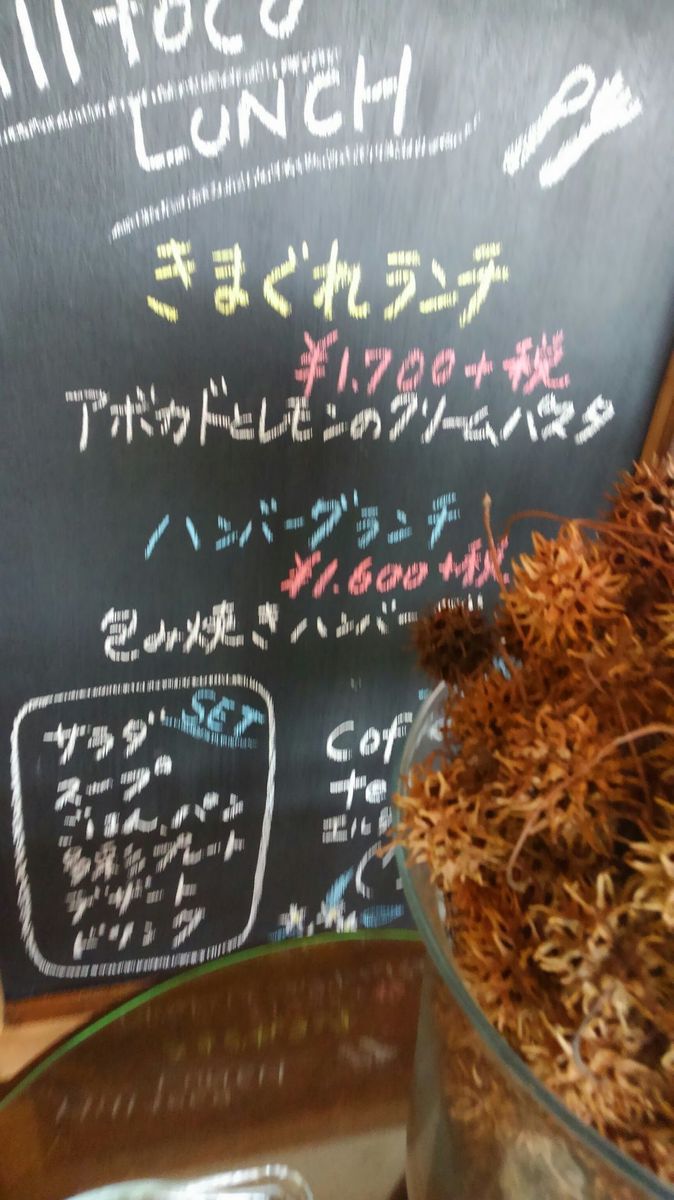 LUNCH
きまぐれランチ
¥1.700+税
アボカドとレモンのクリームパスタ
ハンバーグランチ
¥1.600+税
包み焼きハンバーグ
SET
サラダ
スープ
ごはん、パン
デザート
ドリンク
Cof
te